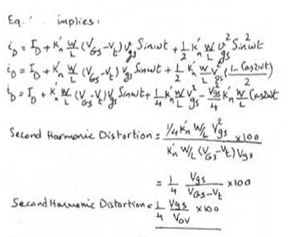 Eq. implies:
i_D = I_D + k'_n W/L (V_GS - V_t) v_gs Sinωt + 1/2 k'_n W/L v²_gs Sin²ωt
i_D = I_D + k'_n W/L (V_GS - V_t) v_gs Sinωt + 1/2 k'_n W/L v²_gs (1 - Cos2ωt / 2)
i_D = I_D + k'_n W/L (V_GS - V_t) v_gs Sinωt + 1/4 k'_n W/L v²_gs - v²_gs/4 k'_n W/L Cos2ωt
Second Harmonic Distortion = 1/4 k'_n W/L v²_gs / k'_n W/L (V_GS - V_t) v_gs x100
= 1/4 v_gs / V_GS - V_t x100
Second Harmonic Distortion = 1/4 v_gs / V_OV x100